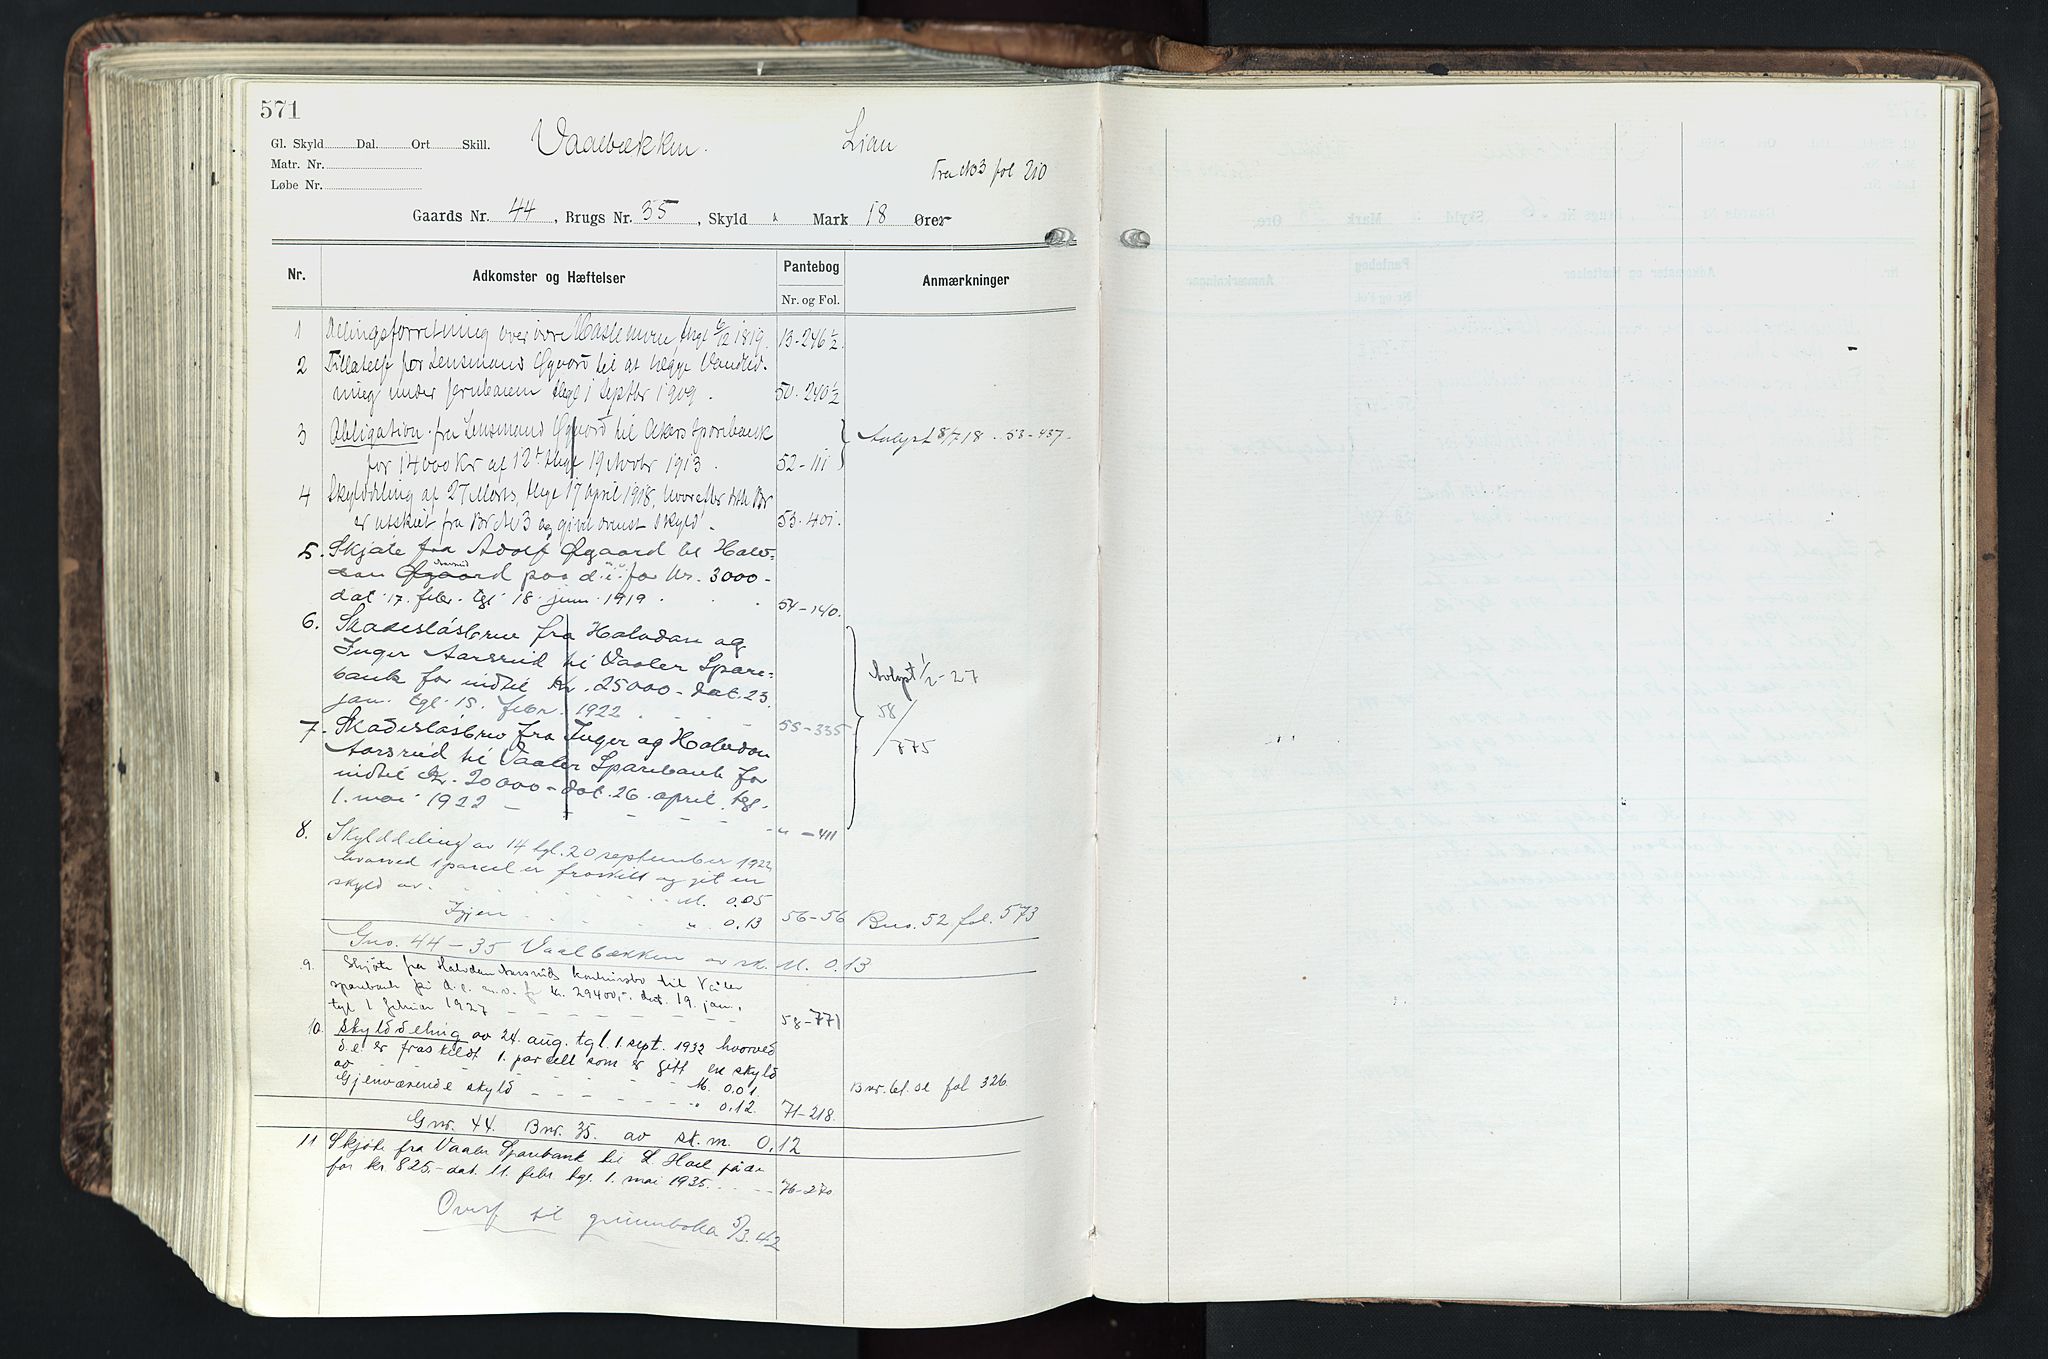 571
Gl. Skyld Dal. Ort Skill. Vaalbækken. Lian
Matr. Nr.
Løbe Nr. Fra No3 fol 210
Gaards Nr. 44, Brugs Nr. 35, Skyld " Mark 18 Ører
Nr. Adkomster og Hæftelser Pantebog Anmærkninger
Nr. og Fol.
1 Delingsforretning over øvre tingl 6/12 1819. 13-246½.
2 Tillatelse for Lensmand Øgaard til at lægge Vandled-
ning under jernbanen thgl 1 septbr 1909. 50-240½
3 Obligation fra Lensmand Øgaard til Akers Sparebank Avlyst 8/7 18. 53-437.
for 14000 Kr af 12te thgl 19 Novbr 1913. 52-111
4 Skylddeling af 27 Marts, thgl 17 april 1918, hvorefter dette Br
er utskilt fra BrNo 3 og givet ovenst skyld. 53-401.
5. Skjøte fra Adolf Øgaard til Halv-
Aarsrud
dan Øgaard paa d. "i" for Kr. 3000-
dat. 17. febr. tgl. 18. juni 1919. 54-140.
6. Skadesløsbrev fra Halvdan og
Inger Aarsrud til Vaaler Spare-
bank for indtil Kr. 25000- dat. 23. Avlyst 1/2-27
jan. tgl. 15. febr. 1922 58/775
7. Skadesløsbrev fra Inger og Halvdan 55-335
Aarsrud til Vaaler Sparebank for
indtil Kr. 20000- dat. 26. april, tgl.
1. mai 1922
8. Skylddeling av 14 tgl. 20 september 1922 " -411
hvorved 1 parcel er fraskilt og git en
skyld av. M. 0.05
Igjen " 0.13 56-56 Bno. 52 fol. 573
Gno. 44-35 Vaalbækken av sk. M. 0.13
9. Skjøte fra Halvdan Aarsruds konkursbo til Våler
sparebank på d. e. m. v. f. kr. 29400,- dat. 19. jan.
tgl 1 februar 1927 58-771
10. Skylddeling av 24. aug. tgl. 1 sept. 1932 hvorved
d.e. er fraskildt 1. parcell som er gitt en skyld
av M. 0.01.
Gjenværende skyld " 0.12. 71-218. Bnr. 61. se fol 326.
Gnr. 44. Bnr. 35. av sk. m. 0,12
11 Skjøte fra Vaaler Sparebank til L. Hoel på d.e
for kr. 825.- dat. 11. febr. tgl. 1. mai 1935. 76-270
Overf. til grunnboka 5/3.42